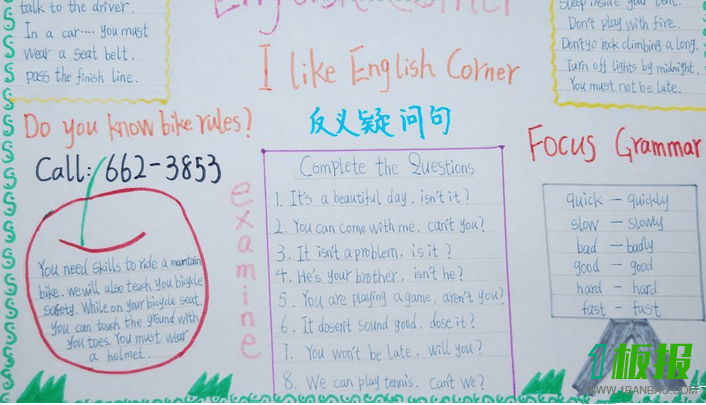 talk to the driver.
In a car.... you must
wear a seat belt.
pass the finish line.
English Corner
I like English Corner
Sleep inside your tent.
Don't play with fire.
Don't go rock climbing a long.
Turn off lights by midnight.
You must not be late.
Do you know bike rules?
Call: 662-3853
You need skills to ride a mountain
bike. we will also teach you bicycle
safety. While on your bicycle seat,
you can touch the ground with
you toes. You must wear
a helmet.
examine
反义疑问句
Complete the Questions
1. It's a beautiful day, isn't it?
2. You can come with me, can't you?
3. It isn't a problem, is it?
4. He's your brother, isn't he?
5. You are playing a game, aren't you?
6. It doesn't sound good, dose it?
7. You won't be late, will you?
8. We can play tennis, can't we?
Focus Grammar
quick — quickly
slow — slowly
bad — badly
good — good
hard — hard
fast — fast
板报